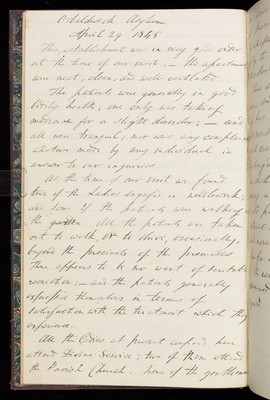 Osbaldwick Asylum
April 29 1845
This establishment was in very good order
at the time of our visit; – the apartments
were neat, clean, and well ventilated.
The patients were generally in good
bodily health; one only was taking
medicine for a slight disorder; – and
all were tranquil; nor was any complaint
whatever made by any individual in
answer to our inquiries
At the time of our visit we found
two of the Ladies engaged in needlework;
and some of the patients were walking in
the garden. All the patients are taken
out to walk, or to drive, occasionally,
beyond the precincts of the premises
There appears to be no want of suitable
recreation; – and the patients generally
expresses themselves in terms of
satisfaction with the treatment which they
experience.
All the Ladies at present confined here
attend Divine Service; two of them attend
the Parish Church. None of the gentlemen